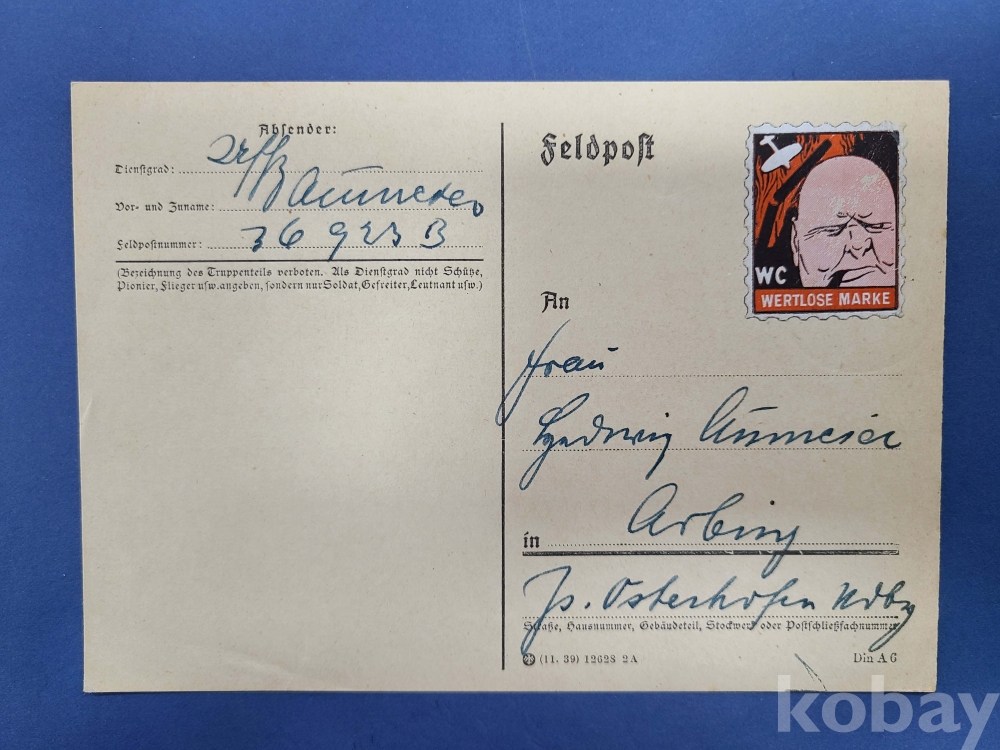 Absender:
Dienstgrad:
Vor- und Zuname:
Feldpostnummer: 36 923 B
(Bezeichnung des Truppenteils verboten. Als Dienstgrad nicht Schütze,
Pionier, Flieger usw. angeben, sondern nur Soldat, Gefreiter, Leutnant usw.)
Feldpost
WC
WERTLOSE MARKE
An
Frau
Hedwig Aumeier
in Arbing
Osterhofen Ndby
Straße, Hausnummer, Gebäudeteil, Stockwerk oder Postschließfachnummer
(11. 39) 12628 2A
Din A 6
kobay